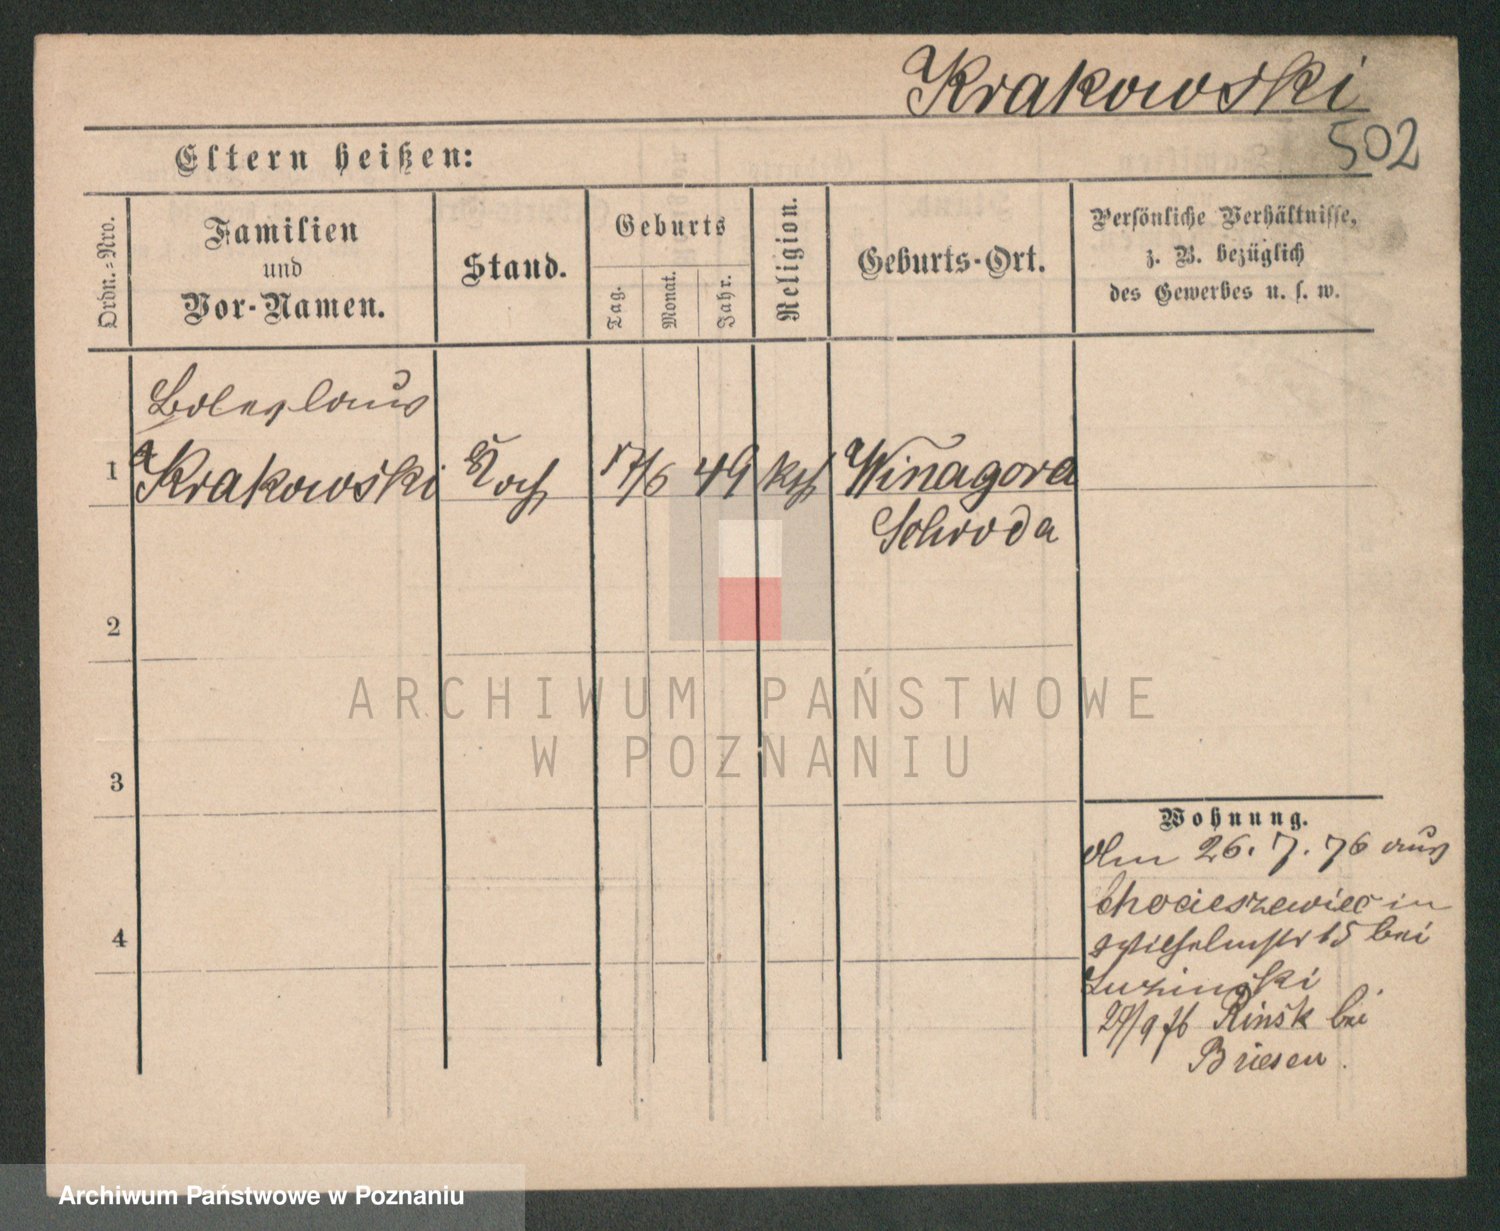 Krakowski
502
Eltern heißen:
Ordn.-Nro.
Familien
und
Vor-Namen.
Stand.
Geburts
Tag.
Monat.
Jahr.
Religion.
Geburts-Ort.
Persönliche Verhältnisse,
z. B. bezüglich
des Gewerbes u. s. w.
Boleslaus
1 Krakowski Koch 17/6 49 kth Winagora
Schroda
2
3
4
Wohnung.
Am 26. 7. 76 aus
Chocieszewiec in
Wilhelmstr 15 bei
Luzinski
27/9 76 Rinsk bei
Briesen.
ARCHIWUM PAŃSTWOWE
W POZNANIU
Archiwum Państwowe w Poznaniu